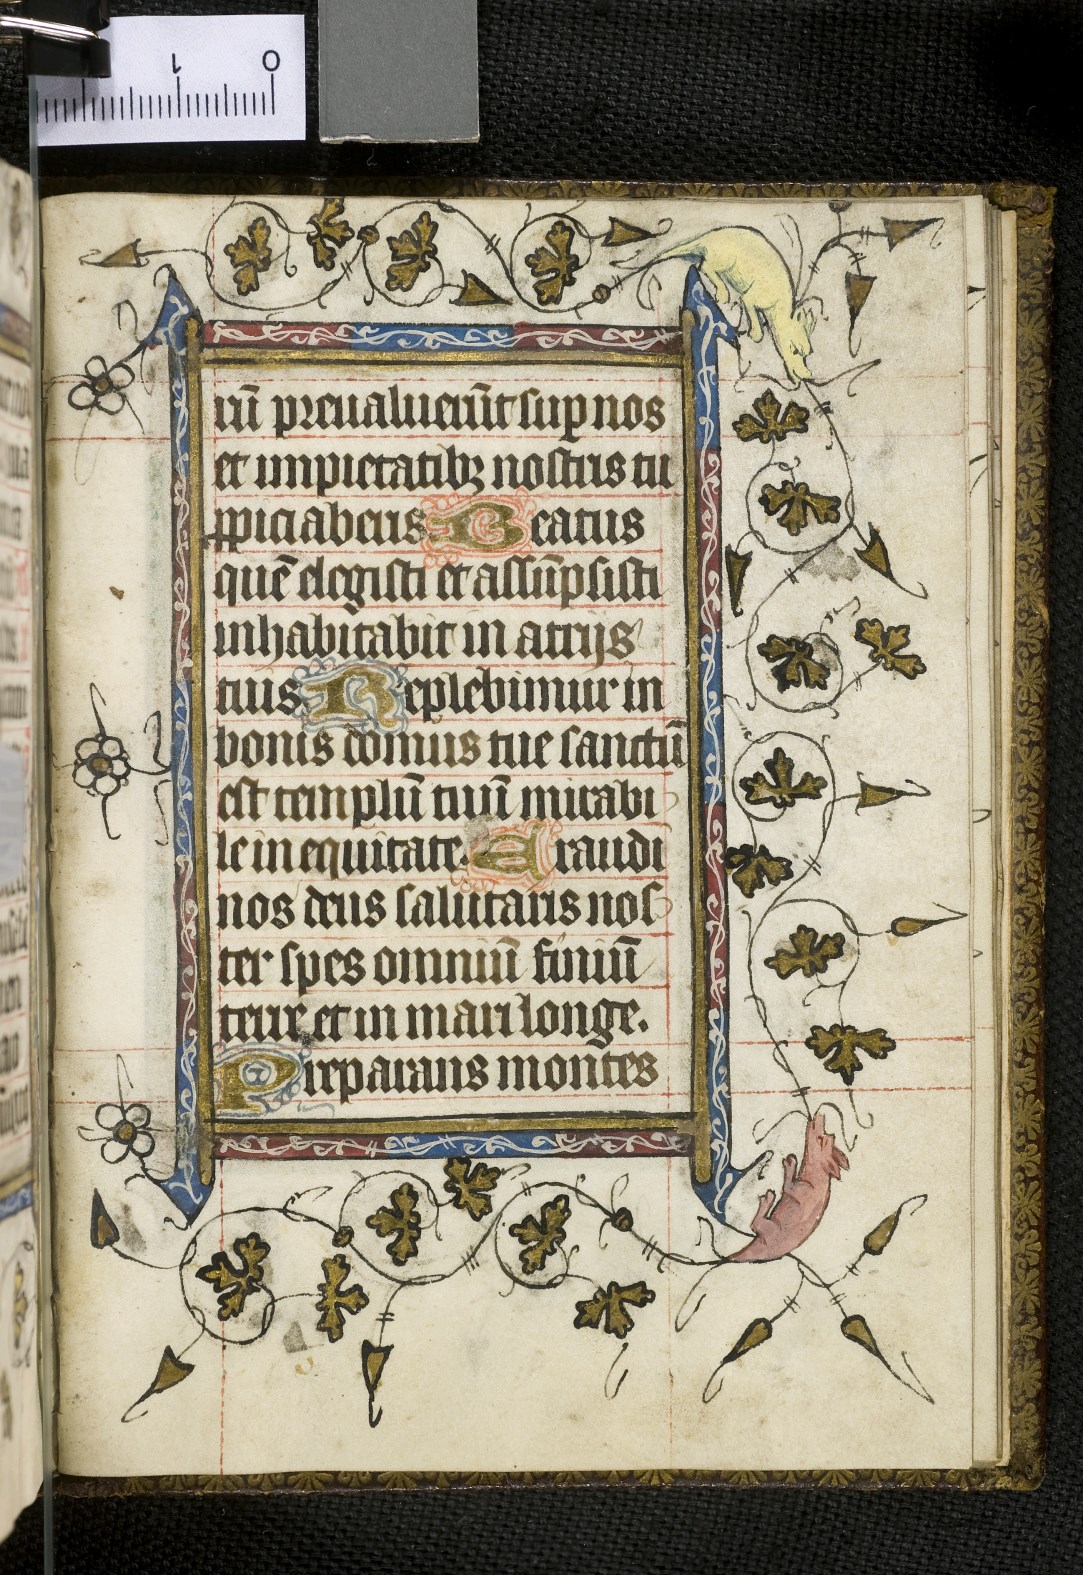 1 0
rū preualuerūt sup nos
et impietatibꝫ nostris tu
ꝓpiciaberis Beatus
quē elegisti et assūpsisti
inhabitabit in atrijs
tuis Replebimur in
bonis domus tue sanctū
est templū tuū mirabi
le in equitate. Exaudi
nos deus salutaris nos
ter spes omniū finiū
terre et in mari longe.
Preparans montes